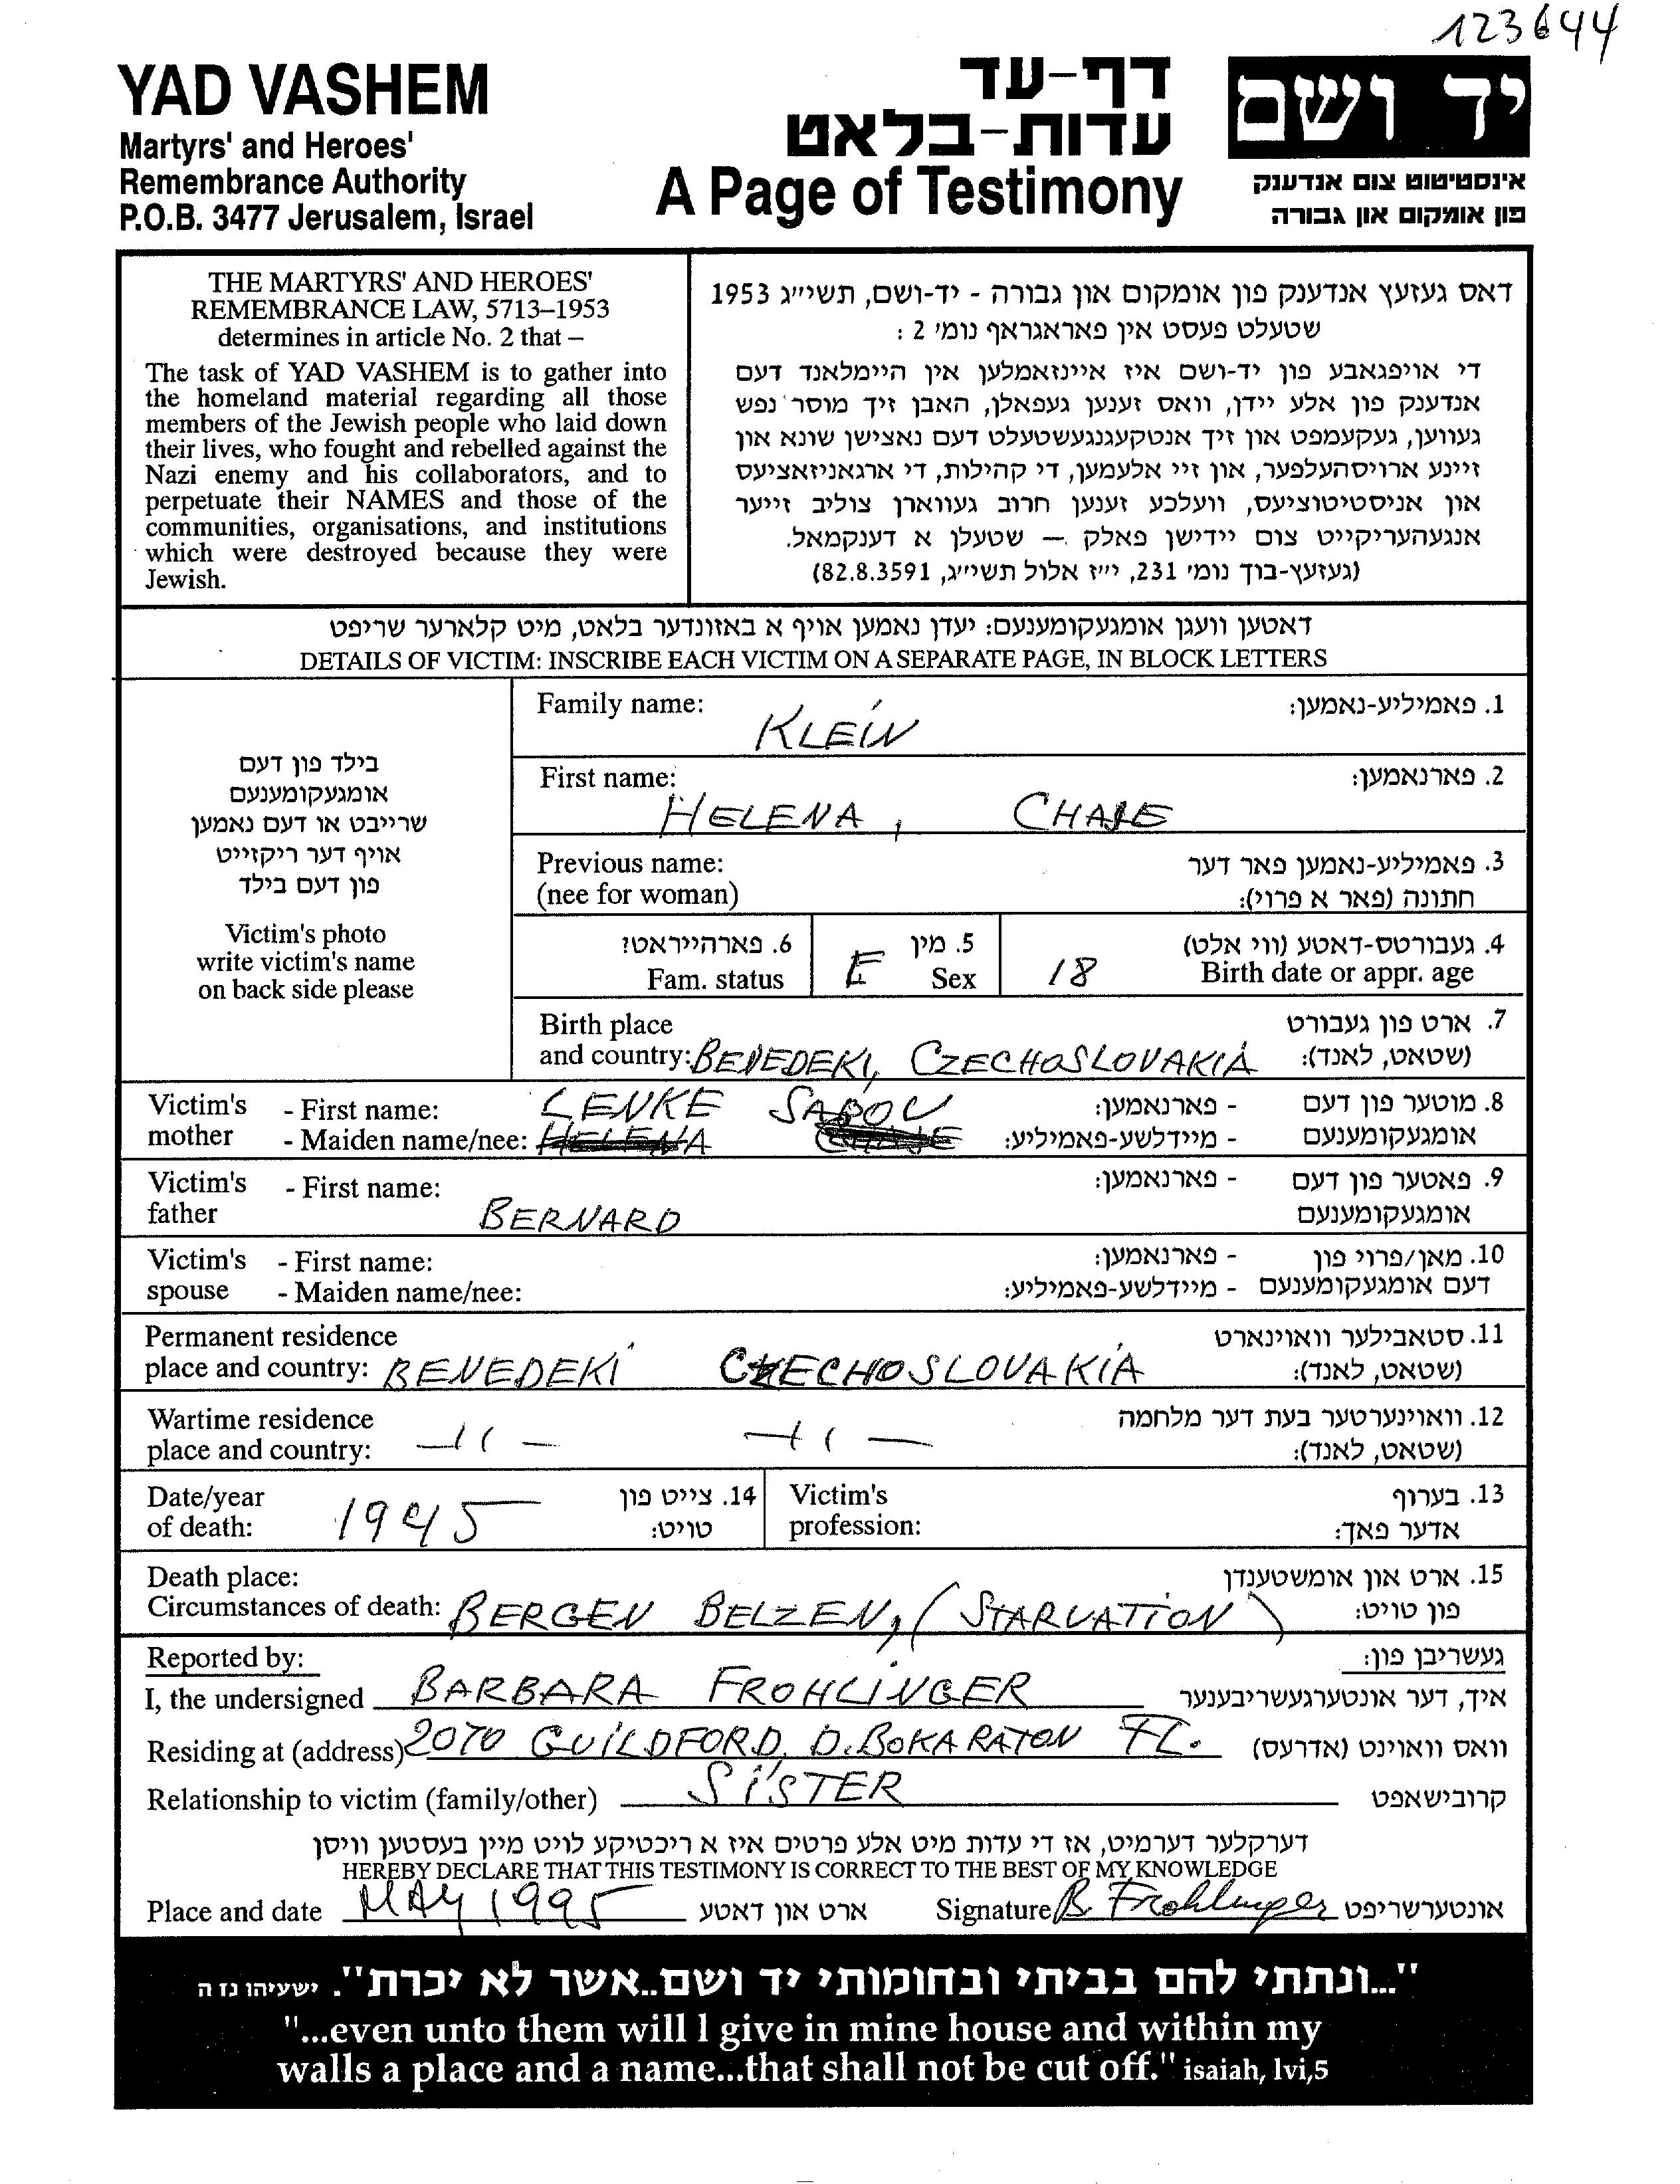 123644
YAD VASHEM
Martyrs' and Heroes'
Remembrance Authority
P.O.B. 3477 Jerusalem, Israel
דף-עד
עדות-בלאט
A Page of Testimony
יד ושם
אינסטיטוט צום אנדענק
פון אומקום און גבורה
THE MARTYRS' AND HEROES'
REMEMBRANCE LAW, 5713–1953
determines in article No. 2 that –
The task of YAD VASHEM is to gather into
the homeland material regarding all those
members of the Jewish people who laid down
their lives, who fought and rebelled against the
Nazi enemy and his collaborators, and to
perpetuate their NAMES and those of the
communities, organisations, and institutions
which were destroyed because they were
Jewish.
דאס געזעץ אנדענק פון אומקום און גבורה - יד-ושם, תשי״ג 1953
שטעלט פעסט אין פאראגראף נומ׳ 2 :
די אויפגאבע פון יד-ושם איז איינזאמלען אין היימלאנד דעם
אנדענק פון אלע יידן, וואס זענען געפאלן, האבן זיך מוסר נפש
געווען, געקעמפט און זיך אנטקעגנגעשטעלט דעם נאצישן שונא און
זיינע ארויסהעלפער, און זיי אלעמען, די קהילות, די ארגאניזאציעס
און אניסטיטוציעס, וועלכע זענען חרוב געווארן צוליב זייער
אנגעהעריקייט צום יידישן פאלק — שטעלן א דענקמאל.
(געזעץ-בוך נומ׳ 231, י״ז אלול תשי״ג, 82.8.3591)
דאטען וועגן אומגעקומענעם: יעדן נאמען אויף א באזונדער בלאט, מיט קלארער שריפט
DETAILS OF VICTIM: INSCRIBE EACH VICTIM ON A SEPARATE PAGE, IN BLOCK LETTERS
בילד פון דעם
אומגעקומענעם
שרייבט או דעם נאמען
אויף דער ריקזייט
פון דעם בילד
Victim's photo
write victim's name
on back side please
Family name: KLEIN 1. פאמיליע-נאמען:
First name: HELENA, CHAJE 2. פארנאמען:
Previous name: 3. פאמיליע-נאמען פאר דער
(nee for woman) חתונה (פאר א פרוי):
6. פארהייראט? 5. מין 4. געבורטס-דאטע (ווי אלט)
Fam. status F Sex 18 Birth date or appr. age
Birth place 7. ארט פון געבורט
and country: BENEDEKI, CZECHOSLOVAKIA (שטאט, לאנד):
Victim's - First name: LENKE SABOV - פארנאמען: 8. מוטער פון דעם
mother - Maiden name/nee: HELENA CHAJE - מיידלשע-פאמיליע: אומגעקומענעם
Victim's - First name: - פארנאמען: 9. פאטער פון דעם
father BERNARD אומגעקומענעם
Victim's - First name: - פארנאמען: 10. מאן/פרוי פון
spouse - Maiden name/nee: - מיידלשע-פאמיליע: דעם אומגעקומענעם
Permanent residence 11. סטאבילער וואוינארט
place and country: BENEDEKI CZECHOSLOVAKIA (שטאט, לאנד):
Wartime residence 12. וואוינערטער בעת דער מלחמה
place and country: —11— —11— (שטאט, לאנד):
Date/year 14. צייט פון Victim's 13. בערוף
of death: 1945 טויט: profession: אדער פאך:
Death place: 15. ארט און אומשטענדן
Circumstances of death: BERGEN BELZEN, (STARVATION) פון טויט:
Reported by: געשריבן פון:
I, the undersigned BARBARA FROHLINGER איך, דער אונטערגעשריבענער
Residing at (address) 2070 GUILDFORD, D. BOKA RATON FL. וואס וואוינט (אדרעס)
Relationship to victim (family/other) SISTER קרובישאפט
דערקלער דערמיט, אז די עדות מיט אלע פרטים איז א ריכטיקע לויט מיין בעסטען וויסן
HEREBY DECLARE THAT THIS TESTIMONY IS CORRECT TO THE BEST OF MY KNOWLEDGE
Place and date MAY 1995 ארט און דאטע Signature B. Frohlinger אונטערשריפט
"...ונתתי להם בביתי ובחומותי יד ושם..אשר לא יכרת". ישעיהו נז ה
"...even unto them will I give in mine house and within my
walls a place and a name...that shall not be cut off." isaiah, lvi,5